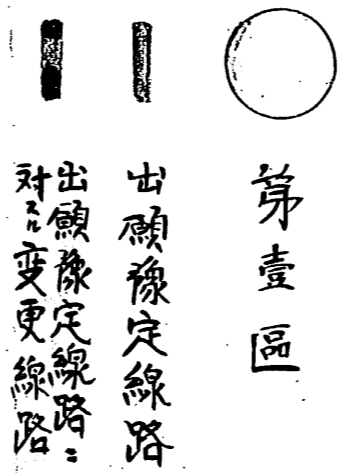 第壹區
出願豫定線路
出願豫定線路ニ
対スル変更線路